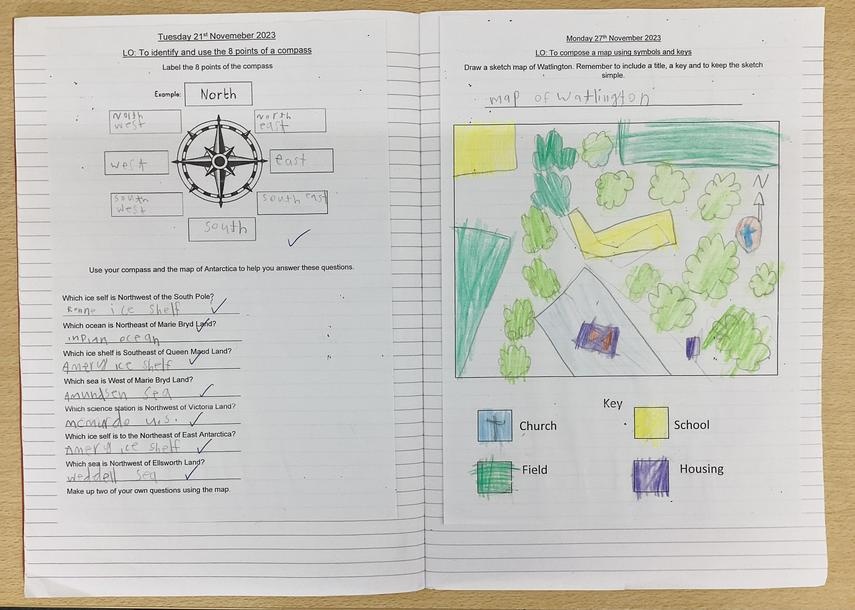 Tuesday 21st Novemeber 2023
LO: To identify and use the 8 points of a compass
Label the 8 points of the compass
Example: North
North west
North east
west
east
south west
south east
south
Use your compass and the map of Antarctica to help you answer these questions.
Which ice self is Northwest of the South Pole?
Ronne ice shelf
Which ocean is Northeast of Marie Bryd Land?
indian ocean
Which ice shelf is Southeast of Queen Maed Land?
Amery ice shelf
Which sea is West of Marie Bryd Land?
Amundsen sea
Which science station is Northwest of Victoria Land?
mcmurdo u.s.
Which ice self is to the Northeast of East Antarctica?
Amery ice shelf
Which sea is Northwest of Ellsworth Land?
weddell sea
Make up two of your own questions using the map.
Monday 27th November 2023
LO: To compose a map using symbols and keys
Draw a sketch map of Watlington. Remember to include a title, a key and to keep the sketch
simple.
map of watlington
N
Key
Church
School
Field
Housing